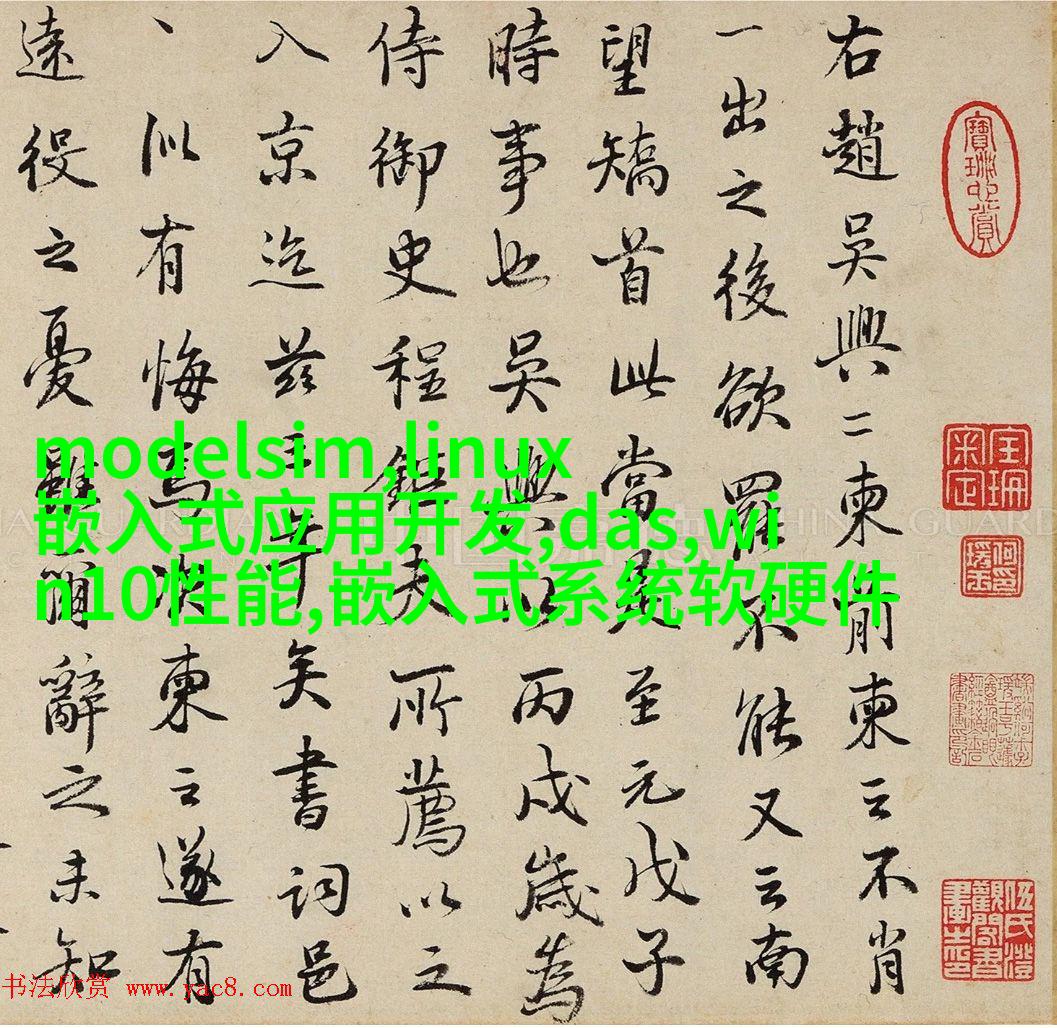 右趙吳興二柬前柬云不肖
一出之後欲罷不能又云南
望矯首此當是至元戊子
時事也吳興以丙戌歲為
侍御史程鉅夫所薦以之
入京迄茲三年矣書詞邑
丶似有悔焉次柬云遂有
遠役之憂雖辭之未知
modelsim,linux
嵌入式应用开发,das,wi
n10性能,嵌入式系统软硬件
书法欣赏 www.yac8.com